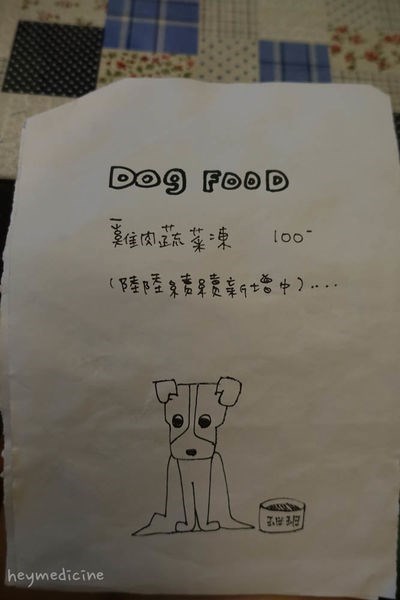 DOG FOOD
雞肉蔬菜凍 100-
(陸陸續續新增中)....
heymedicine